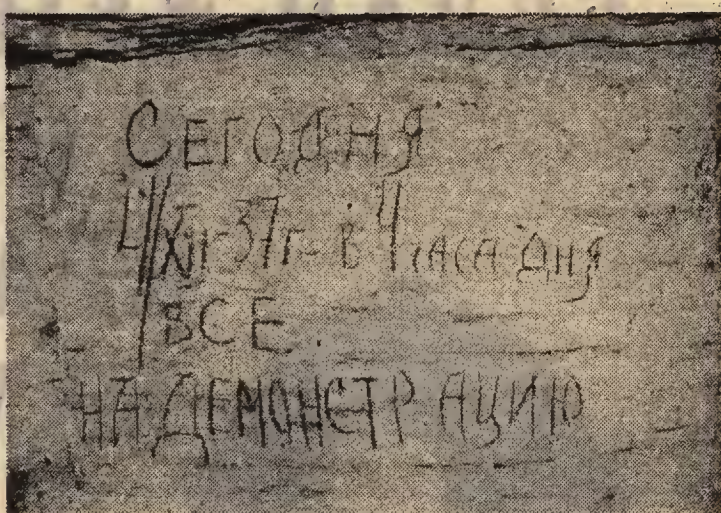 СЕГОДНЯ
4/XI-37г- в 4 часа дня
ВСЕ
НА ДЕМОНСТРАЦИЮ